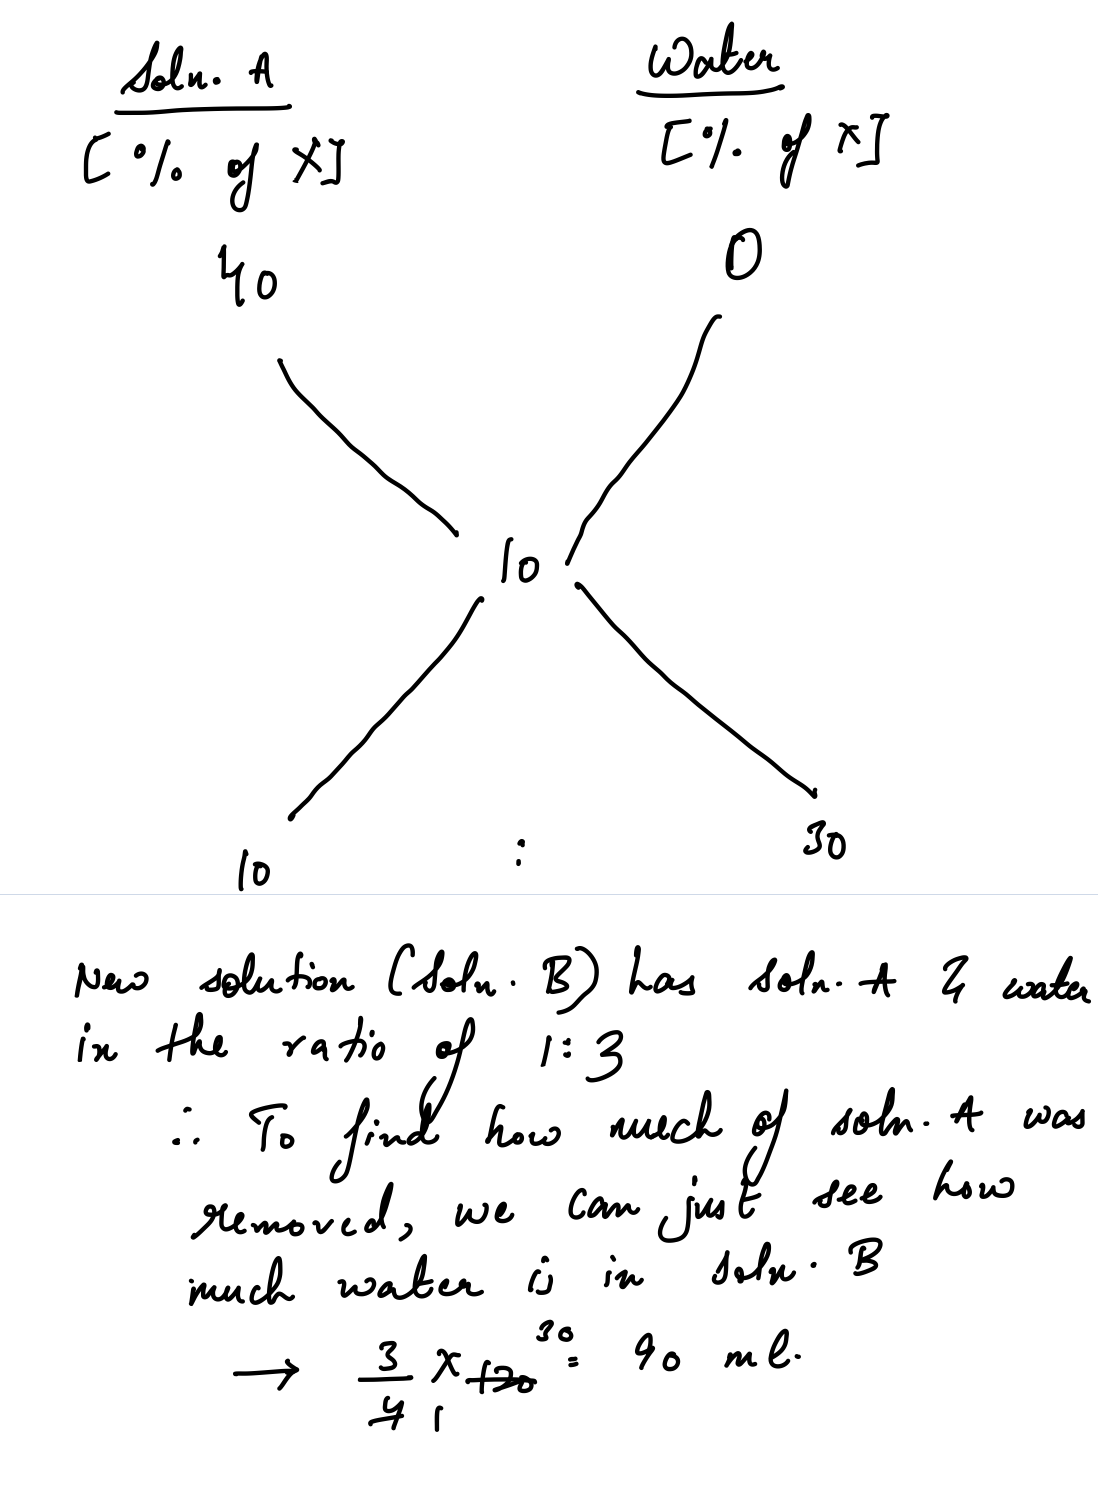 Soln. A Water
[% of X] [% of x]
40 0
10
10 : 30
New solution (Soln. B) has soln. A & water
in the ratio of 1:3
∴ To find how much of soln. A was
removed, we can just see how
much water is in soln. B
→ 3/4 x 120 30 = 90 ml.
1